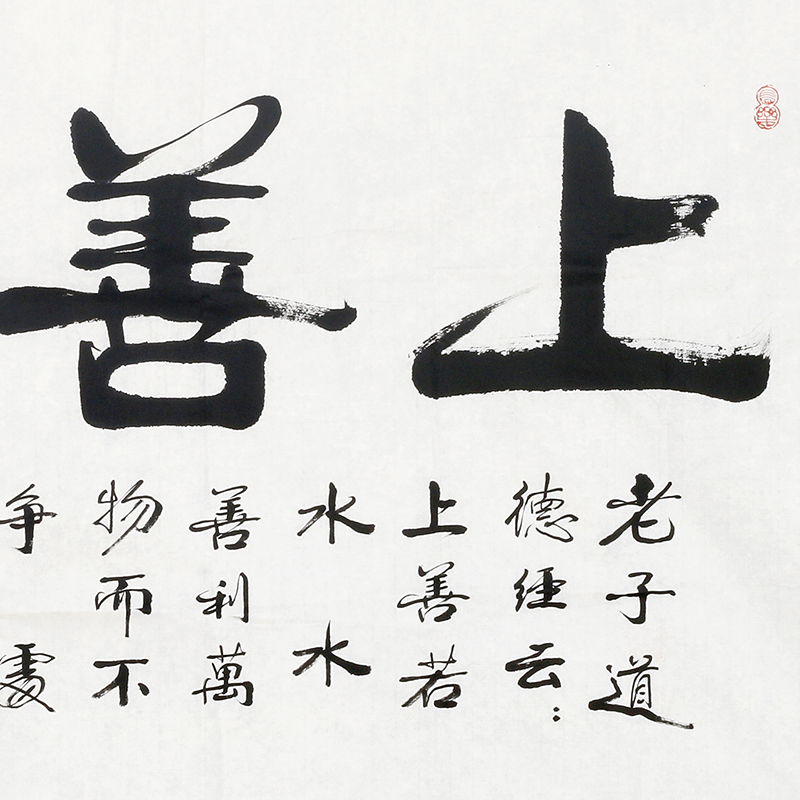 上善
老子道
德經云：
上善若
水水
善利萬
物而不
争處